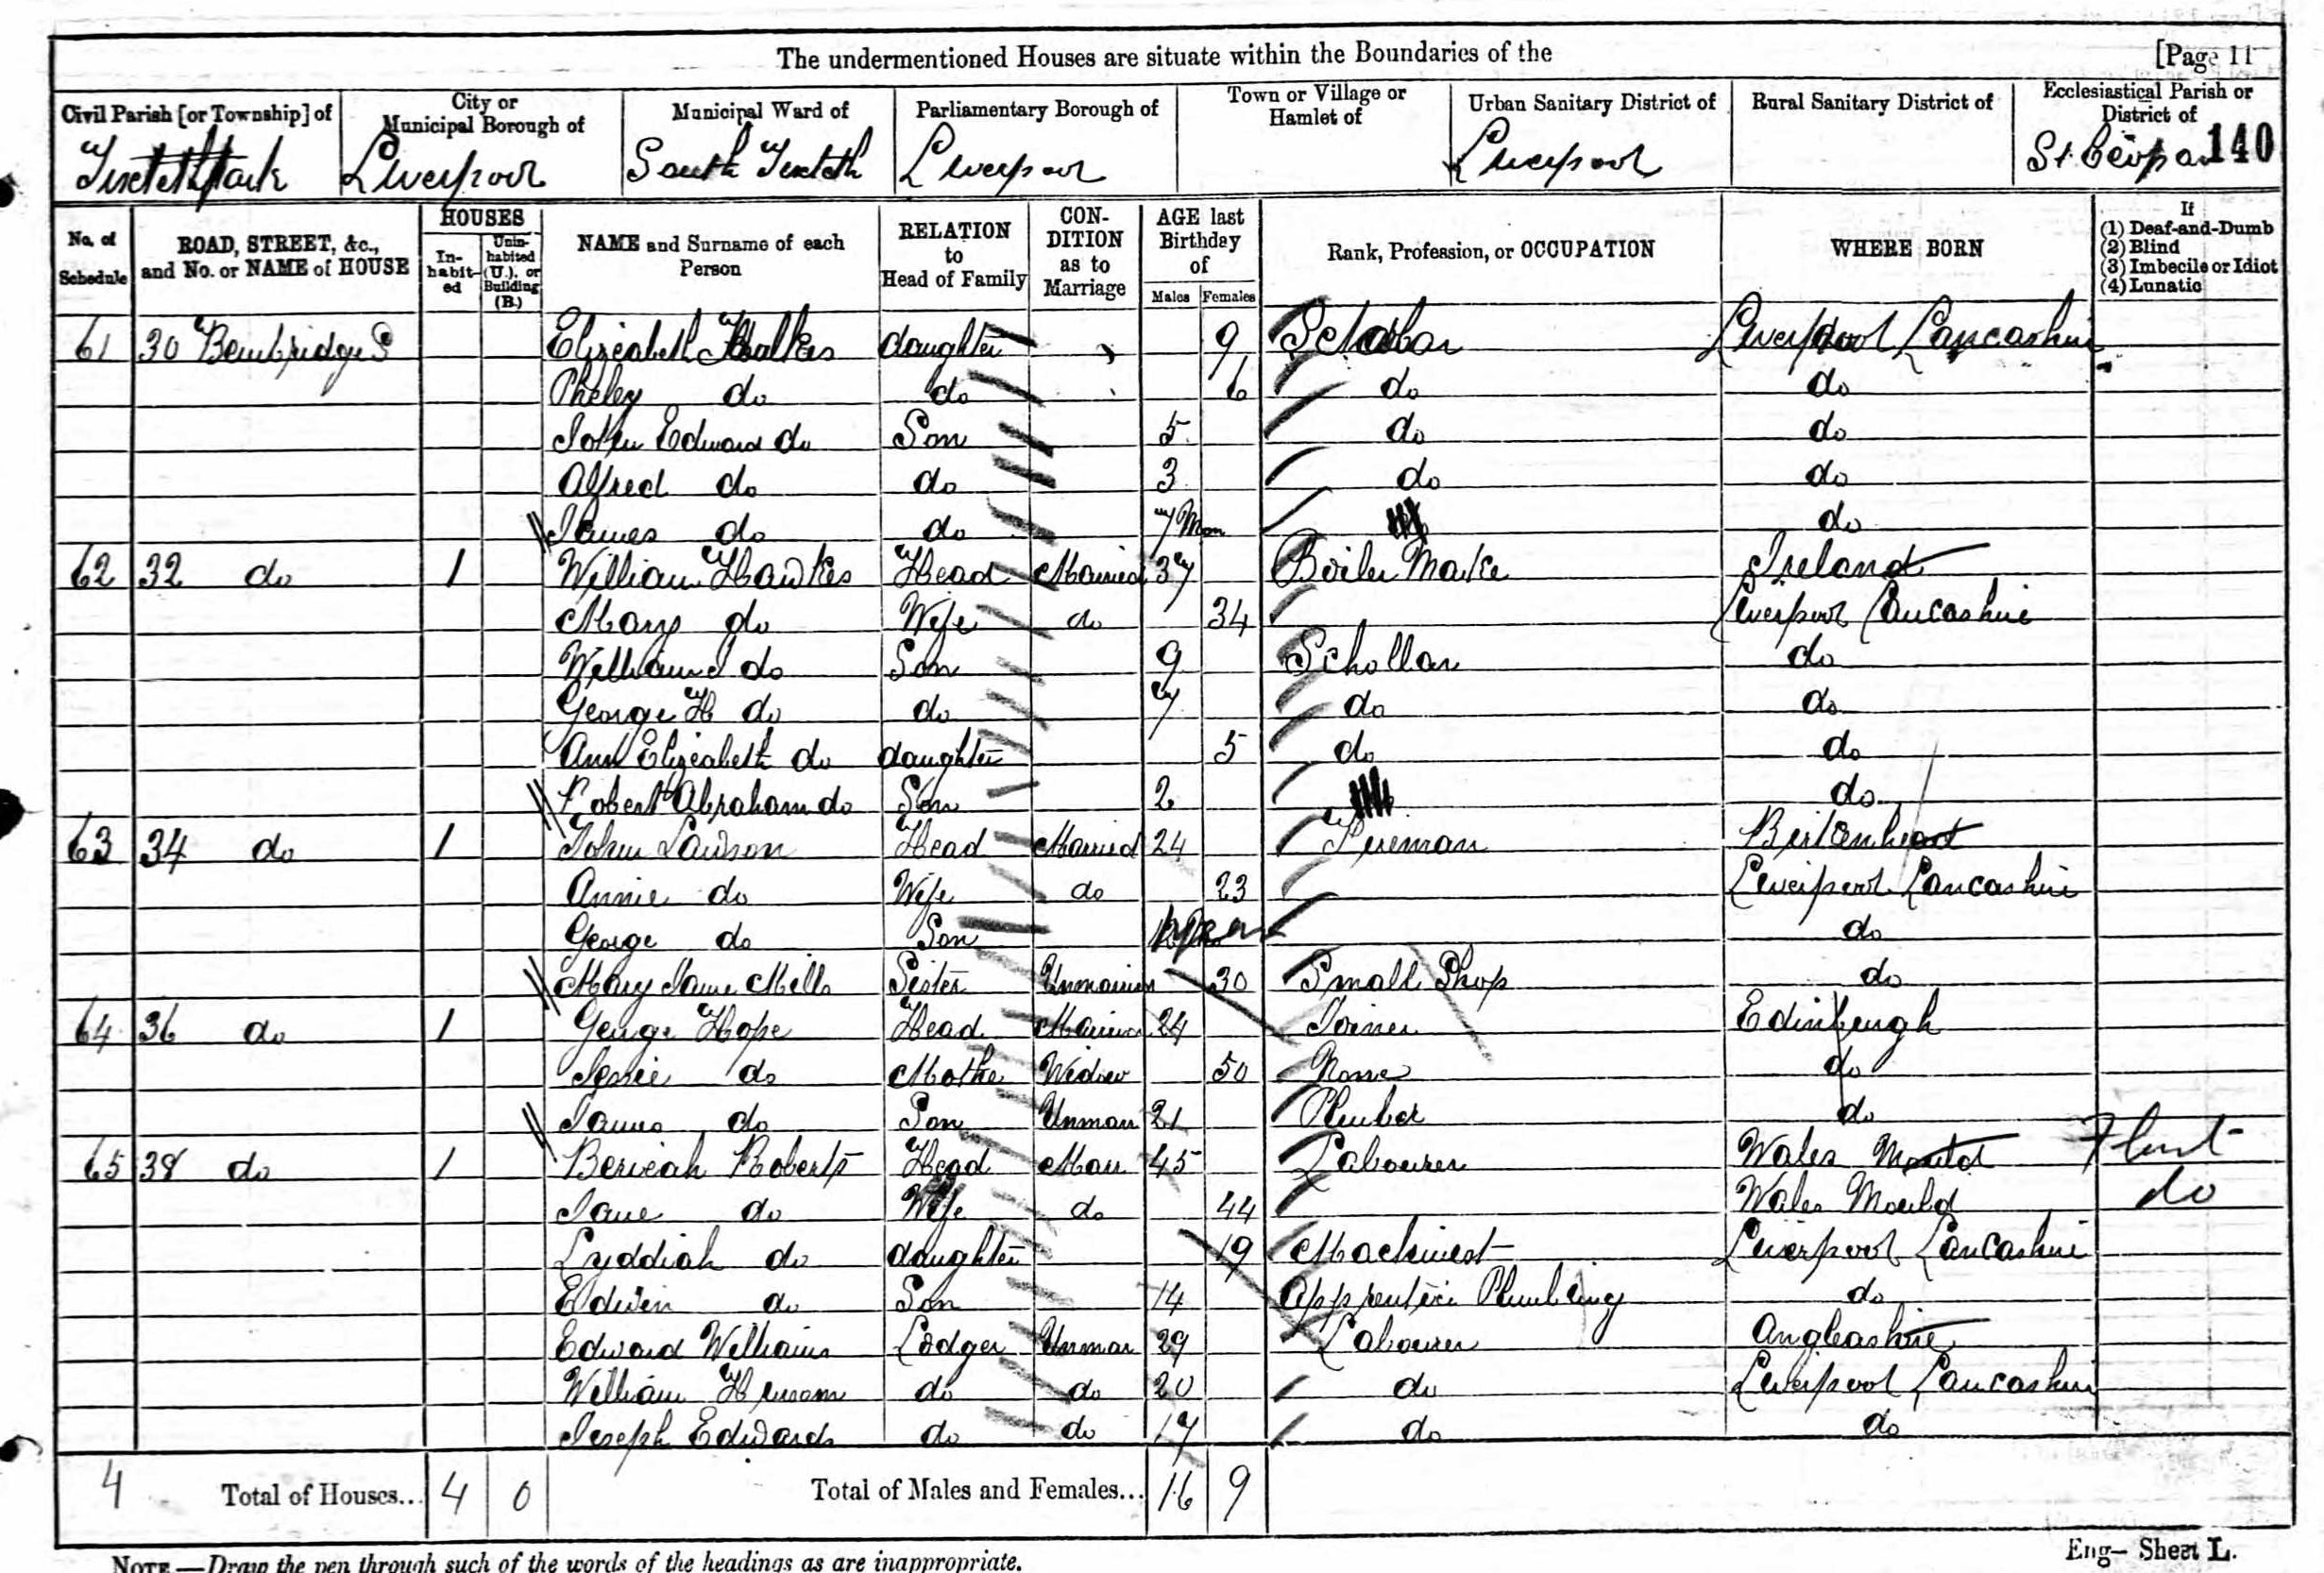 The undermentioned Houses are situate within the Boundaries of the [Page 11
Civil Parish [or Township] of City or Municipal Borough of Municipal Ward of Parliamentary Borough of Town or Village or Hamlet of Urban Sanitary District of Rural Sanitary District of Ecclesiastical Parish or District of
Liverpool South Toxteth Liverpool Liverpool St. 140
No. of Schedule ROAD, STREET, &c., and No. or NAME of HOUSE HOUSES Inhabited Uninhabited (U.), or Building (B.) NAME and Surname of each Person RELATION to Head of Family CONDITION as to Marriage AGE last Birthday of Males Females Rank, Profession, or OCCUPATION WHERE BORN If (1) Deaf-and-Dumb (2) Blind (3) Imbecile or Idiot (4) Lunatic
61 30 Bembridge S Elizabeth daughter 9 Liverpool Lancashire
Pheley do do 6 do do
John Edward do Son 5 do do
Alfred do do 3 do do
James do do 7 Mon do
62 32 do 1 William Hawkes Head Married 37 Boiler Maker Ireland
Mary do Wife do 34 Liverpool Lancashire
William J do Son 9 Schollar do
George H do do 7 do do
Ann Elizabeth do daughter 5 do do
Robert Abraham do Son 2 do
63 34 do 1 John Lawson Head Married 24 Fireman Birkenhead
Annie do Wife do 23 Liverpool Lancashire
George do Son do
Mary Jane Mills Sister Unmarried 30 Small Shop do
64 36 do 1 George Hope Head Married 24 Joiner Edinburgh
Jessie do Mother Widow 50 do
James do Son Unmar 21 Plumber do
65 38 do 1 Berieah Roberts Head Marr 45 Labourer Wales Mould Flint
Jane do Wife do 44 Wales Mould do
Lyddiah do daughter 19 Machinest Liverpool Lancashire
Edwin do Son 14 Apprentice Plumbing do
Edward Williams Lodger Unmar 29 Labourer Angleashire
William do do 20 do Liverpool Lancashire
Joseph Edwards do do 17 do do
4 Total of Houses... 4 0 Total of Males and Females... 16 9
NOTE.—Draw the pen through such of the words of the headings as are inappropriate.
Eng— Sheet L.